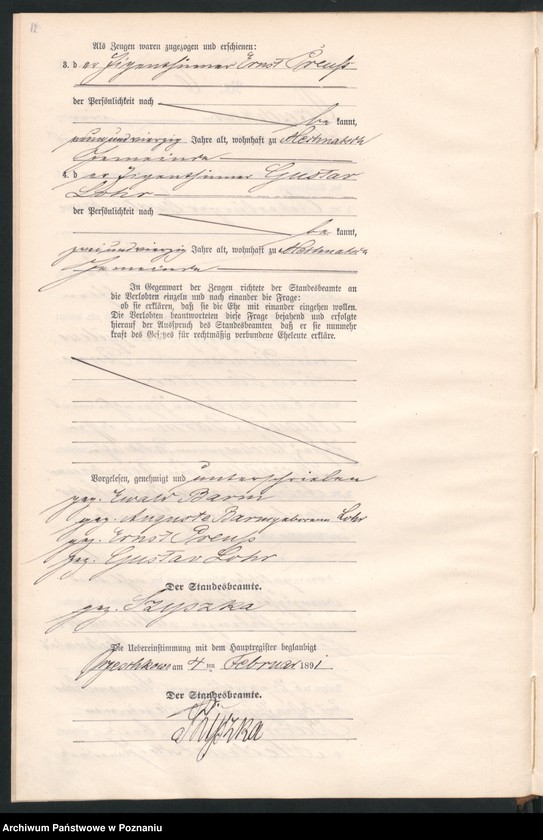 12
Als Zeugen waren zugezogen und erschienen:
3. d er Eigenthümer Ernst Preuß
der Persönlichkeit nach
be kannt,
neunundvierzig Jahre alt, wohnhaft zu
Gemeinde
4. d er Eigenthümer Gustav
Lohr
der Persönlichkeit nach
be kannt,
zweiundvierzig Jahre alt, wohnhaft zu
Gemeinde
In Gegenwart der Zeugen richtete der Standesbeamte an
die Verlobten einzeln und nach einander die Frage:
ob sie erklären, daß sie die Ehe mit einander eingehen wollen.
Die Verlobten beantworteten diese Frage bejahend und erfolgte
hierauf der Ausspruch des Standesbeamten daß er sie nunmehr
kraft des Gesetzes für rechtmäßig verbundene Eheleute erkläre.
Vorgelesen, genehmigt und unterschrieben
gez. Ewald Barm
gez. Auguste Barm geborene Lohr
gez. Ernst Preuß
gez. Gustav Lohr
Der Standesbeamte.
gez. Szyszka
Die Uebereinstimmung mit dem Hauptregister beglaubigt
am 4 ten Februar 1891
Der Standesbeamte.
Szyszka
Archiwum Państwowe w Poznaniu